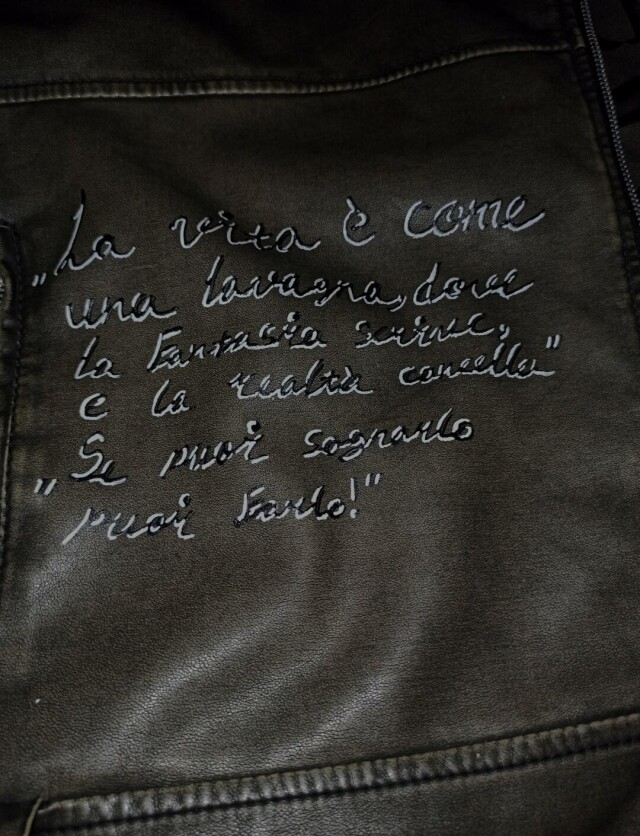 „La vita è come
una lavagna, dove
la Fantasia scrive,
e la realtà cancella"
„Se puoi sognarlo
puoi Farlo!"